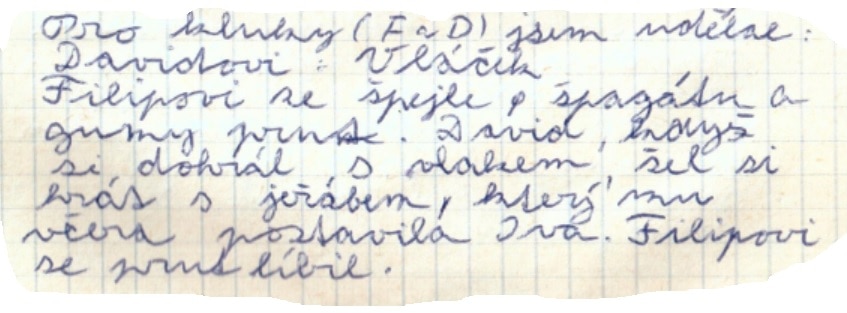 Pro kluky (F a D) jsem udělal:
Davidovi: Vláček
Filipovi ze špejle, špagátu a
gumy prut. David, když
si dohrál s vlakem, šel si
hrát s jeřábem, který mu
včera postavila Iva. Filipovi
se prut líbil.